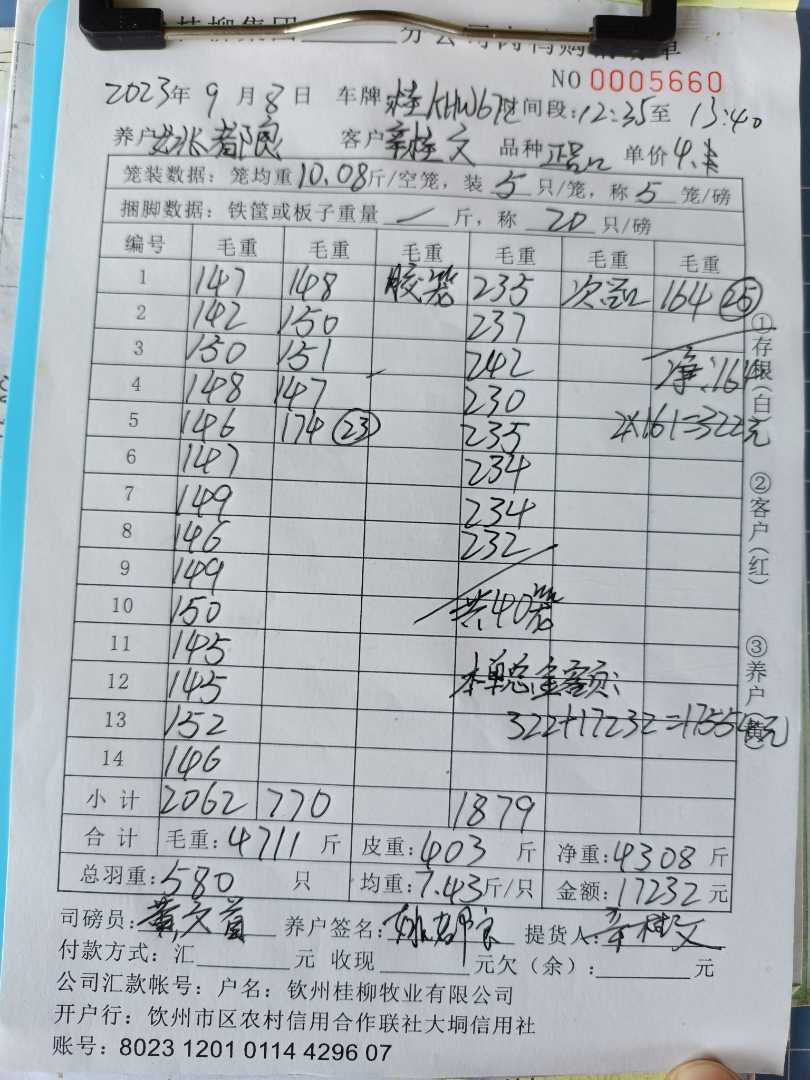 桂柳集团______分公司肉鸭购销为单
NO 0005660
2023年 9 月 8 日 车牌 桂KHW67 时间段:12:35至 13:40
养户:姚都良 客户 辛桂文 品种 正品 单价 4.
笼装数据:笼均重10.08斤/空笼,装 5 只/笼,称 5 笼/磅
捆脚数据:铁筐或板子重量 — 斤,称 20 只/磅
编号 毛重 毛重 毛重 毛重 毛重 毛重
1 147 148 胶笼 235 次品 164 (25)
2 142 150 237
3 150 151 242 净:164
4 148 147 230
5 146 174 (23) 235 2×161=322元
6 147 234
7 149 234
8 146 232
9 149
10 150 共40笼
11 145
12 145 本单总金额:
13 152 322+17232=17554元
14 146
小计 2062 770 1879
合计 毛重:4711 斤 皮重:403 斤 净重:4308 斤
总羽重:580 只 均重:7.43斤/只 金额:17232 元
司磅员:黄文首 养户签名:姚都良 提货人:辛桂文
付款方式:汇______元 收现______元欠(余):______元
公司汇款帐号:户名:钦州桂柳牧业有限公司
开户行:饮州市区农村信用合作联社大垌信用社
账号:8023 1201 0114 4296 07
①存银(白) ②客户(红) ③养户(黄)